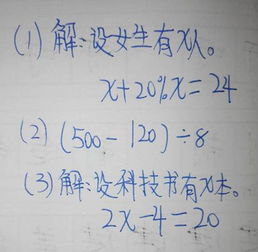 (1) 解:设女生有x人。
x+20%x=24
(2) (500-120)÷8
(3) 解:设科技书有x本。
2x-4=20